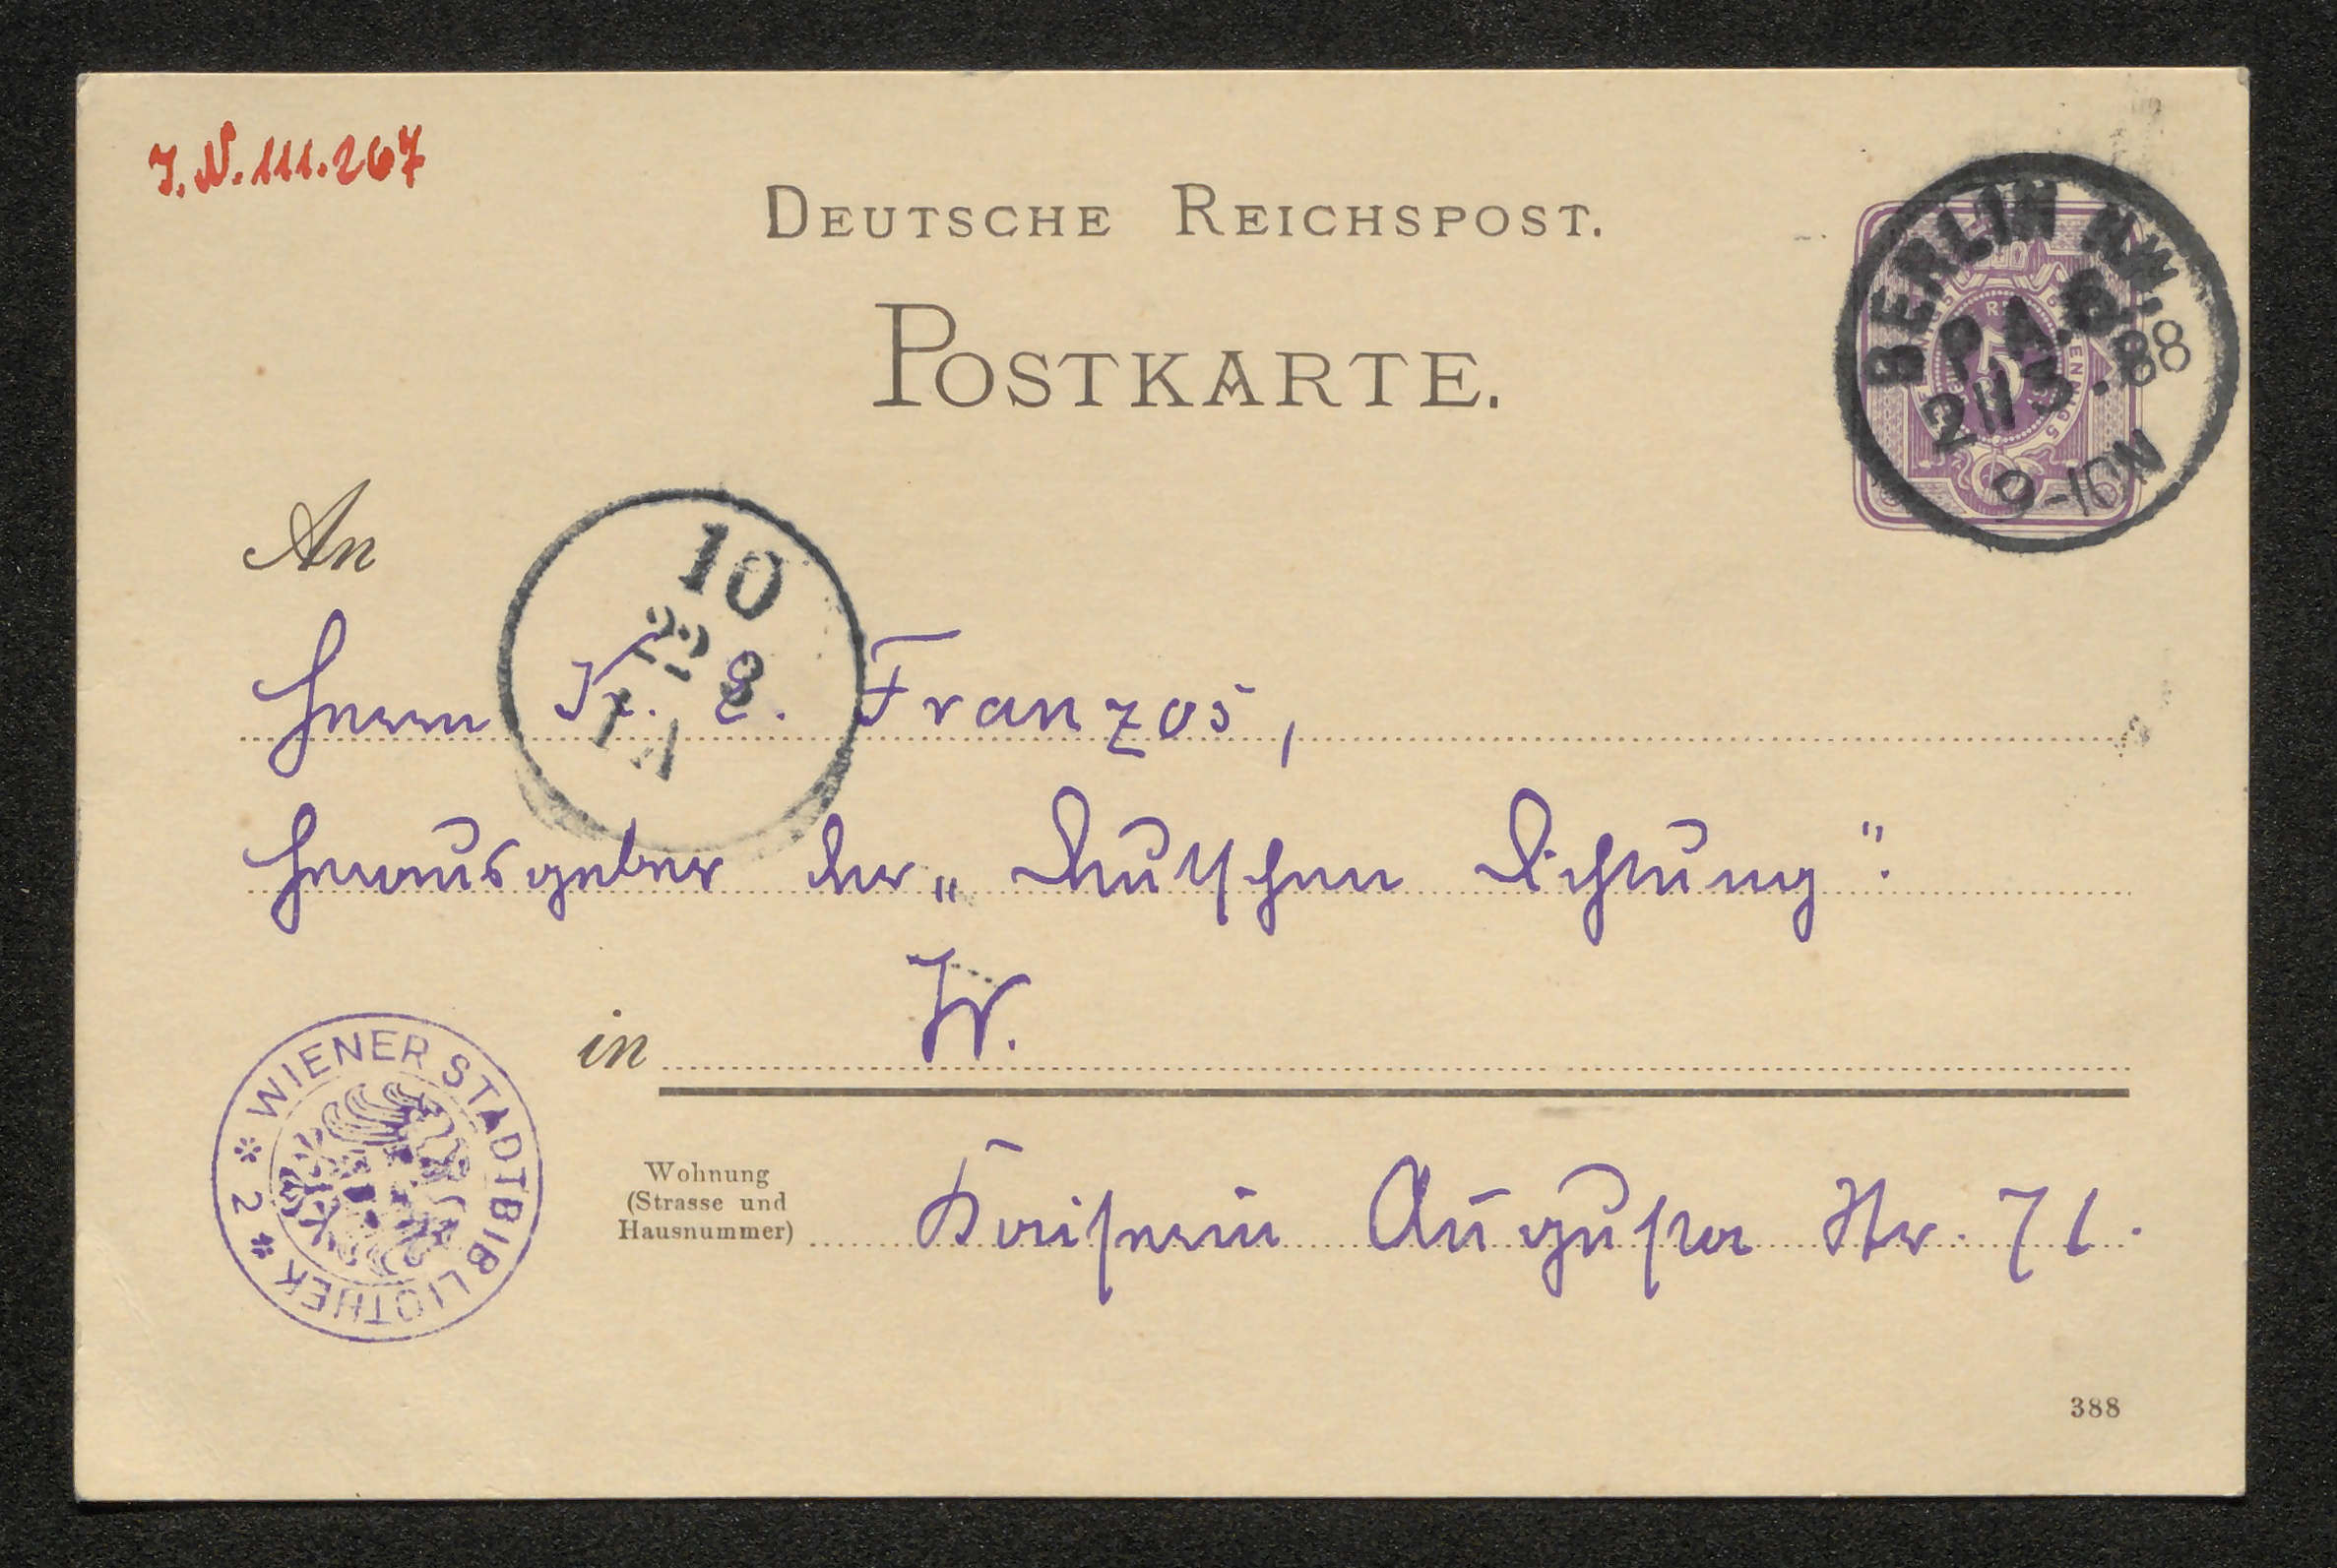 J.N. 111.267
DEUTSCHE REICHSPOST.
POSTKARTE.
BERLIN N.W.
P.A.6.
21/3.88
9-10N
An
10
22 3
Herrn K. E. Franzos,
Herausgeber der „Deutschen Dichtung".
in W.
WIENER STADTBIBLIOTHEK * 2 *
Wohnung
(Strasse und
Hausnummer)
Kaiserin Augusta Str. 71.
388